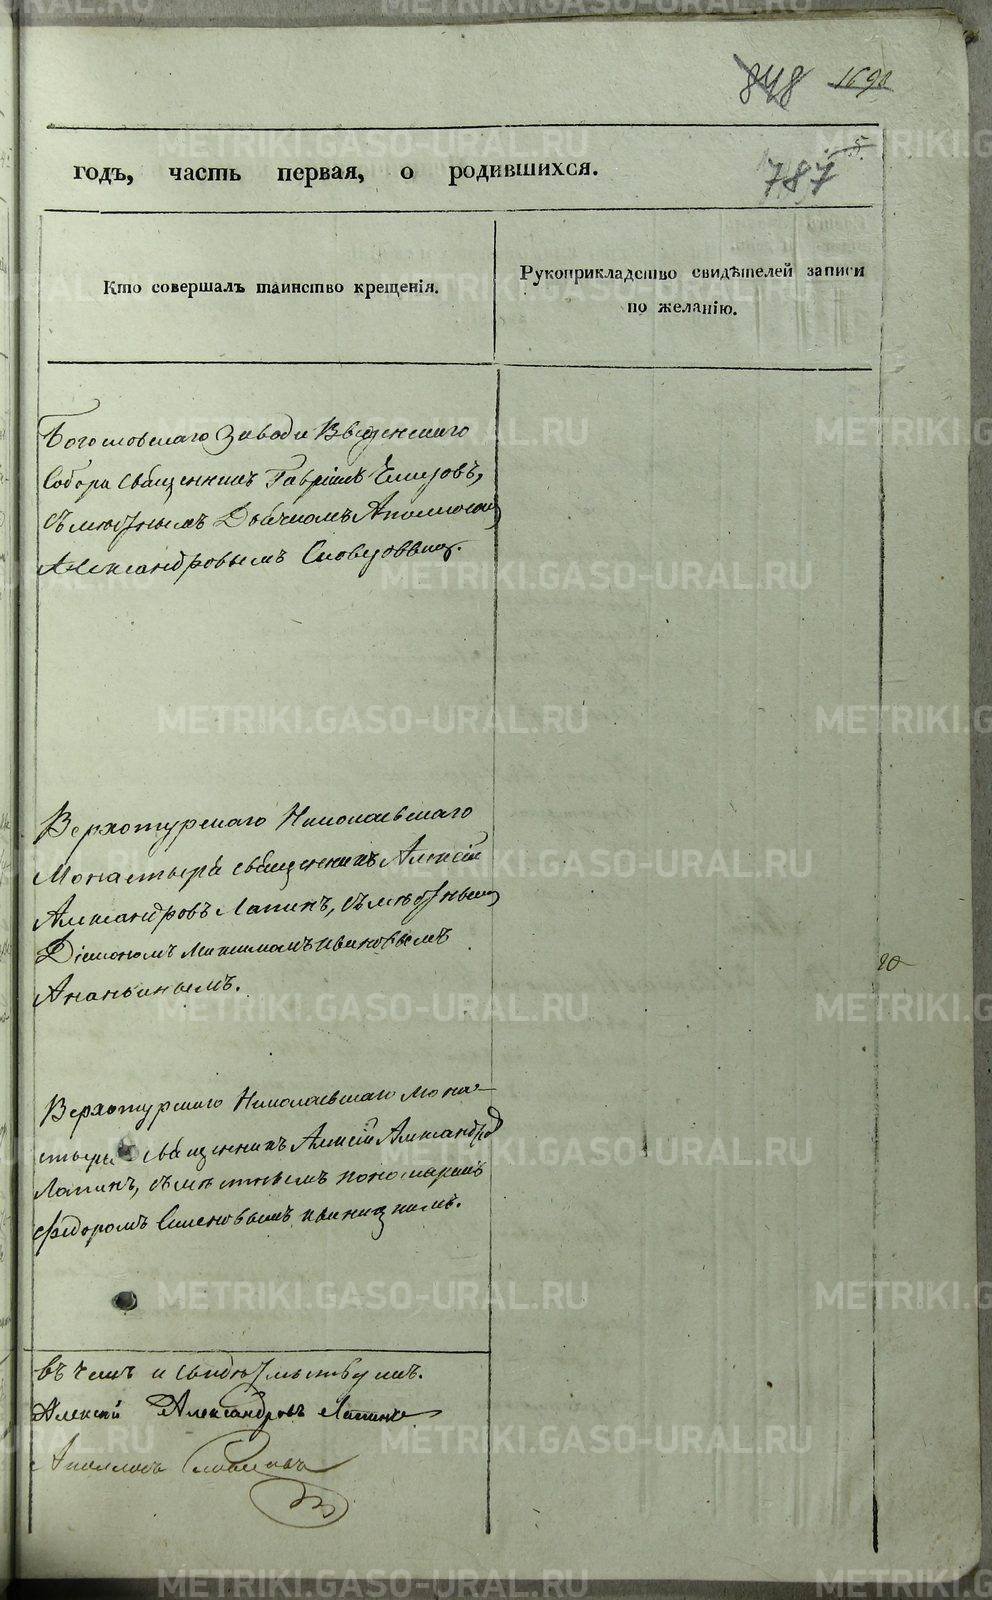 848 169
годъ, часть первая, о родившихся.
787
Кто совершалъ таинство крещенія.
Рукоприкладство свидѣтелей записи
по желанію.
Богословскаго Завода Введенскаго
Собора священникъ Гавріилъ
съ мѣстнымъ Дьячкомъ Аполлосомъ
Александровымъ Словцовымъ.
Верхотурскаго Николаевскаго
Монастыря священникъ Алексій
Александровъ Лапинъ, съ мѣстнымъ
Діакономъ Максимомъ Ивановымъ
Ананьинымъ.
Верхотурскаго Николаевскаго Мона-
стыря священникъ Алексій Александровъ
Лапинъ, съ мѣстнымъ пономаремъ
Федоромъ Симеоновымъ
20
Въ чемъ и свидѣтельствуемъ.
Алексій Александровъ Лапинъ
Аполлосъ Словцовъ
METRIKI.GASO-URAL.RU